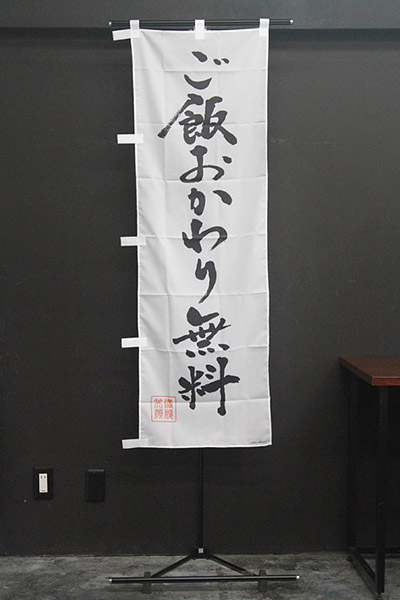 ご飯おかわり無料